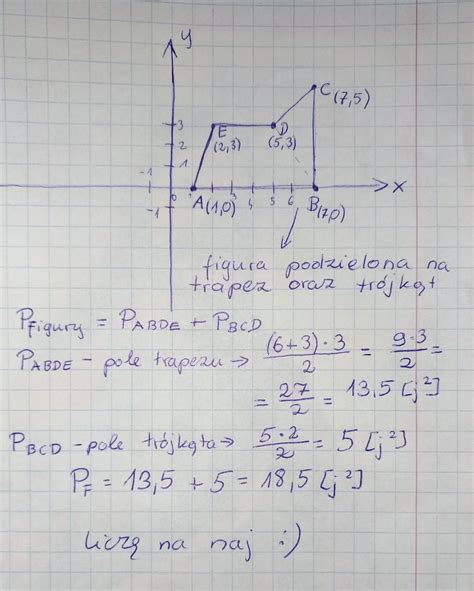 y
C (7,5)
3 E D
2 (2,3) (5,3)
1
-1 0 1 3 4 5 6 x
-1 A(1,0) B(7,0)
figura podzielona na
trapez oraz trójkąt
Pfigury = PABDE + PBCD
PABDE - pole trapezu → (6+3)·3/2 = 9·3/2 =
= 27/2 = 13,5 [j²]
PBCD - pole trójkąta → 5·2/2 = 5 [j²]
PF = 13,5 + 5 = 18,5 [j²]
liczę na naj :)